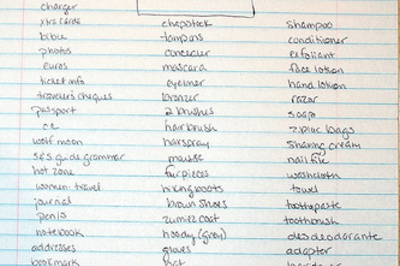 charger
xtra cards
bible
photos
euros
ticket info
traveler's cheques
passport
wolf moon
guide grammar
hot zone
women travel
journal
pens
notebook
addresses
bookmark
chapstick
tampons
concealer
mascara
eyeliner
bronzer
2 brushes
hairbrush
hairspray
mousse
fur pieces
hiking boots
brown shoes
zumiez coat
hoody (gray)
gloves
hat
shampoo
conditioner
exfoliant
face lotion
hand lotion
razor
soap
ziploc bags
shaving cream
nail file
washcloth
towel
toothpaste
toothbrush
desdeodorante
adapter